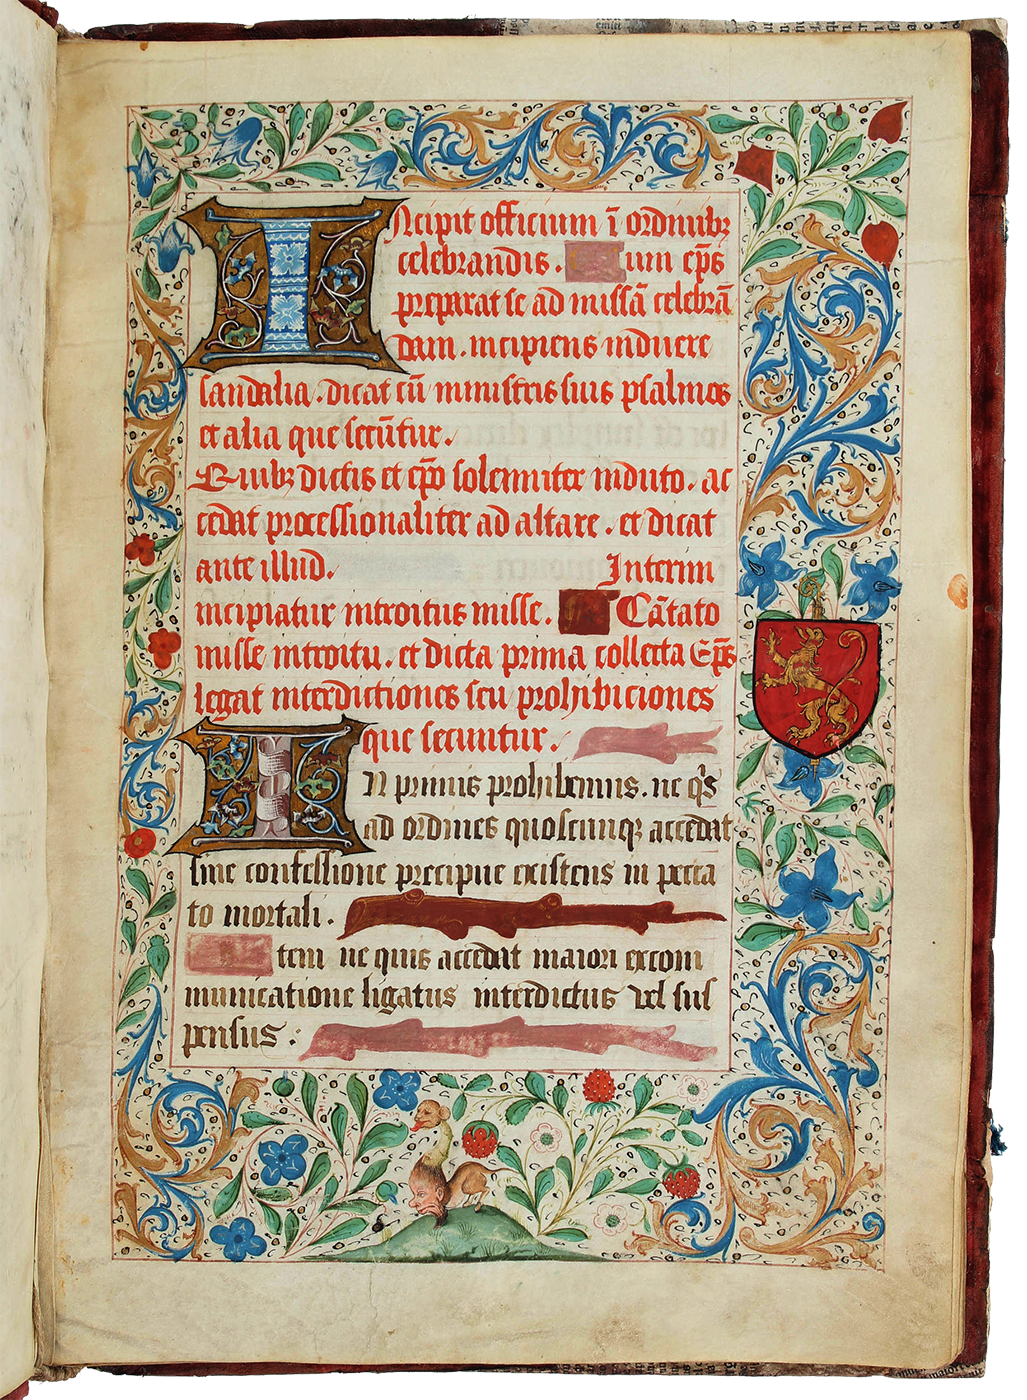 INcipit officium ī ordinibꝫ
celebrandis. um ep̄s
preparat se ad missā celebrā
dam. incipiens induere
sandalia. dicat cū ministris suis psalmos
et alia que secūtur.
Quibꝫ dictis et ep̄o solemniter induto. ac
cedat processionaliter ad altare. et dicat
ante illud. Interim
incipiatur introitus misse. Cātato
misse introitu. et dicta prima collecta Ep̄s
legat interdictiones seu prohibiciones
que secuntur.
IN primis prohibemus. ne qͥs
ad ordines quoscunqꝫ accedat
sine confessione precipue existens in pecca
to mortali.
tem ne quis accedat maiori excom
municatione ligatus interdictus vel sus
pensus: